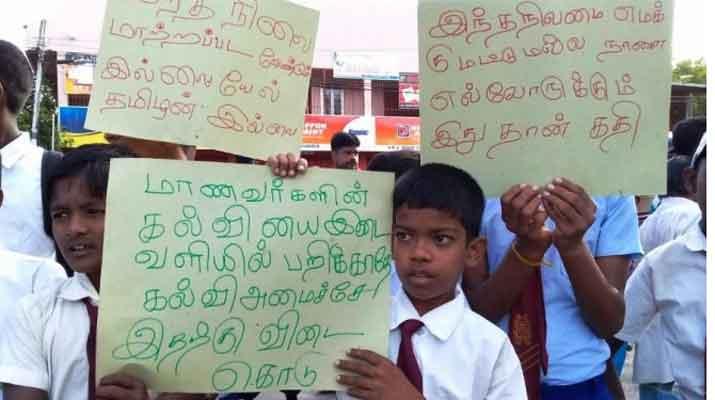 இந்த நிலை
மாற்றப்பட வேண்டும்
இல்லையேல்
தமிழன் இல்லை
இந்தநிலமை எமக்
கு மட்டுமல்ல நாளை
எல்லோருக்கும்
இது தான் கதி
மாணவர்களின்
கல்வியை இடை
வளியில் பறிக்காதே
கல்வி அமைச்சே!
இதற்கு விடை
கொடு